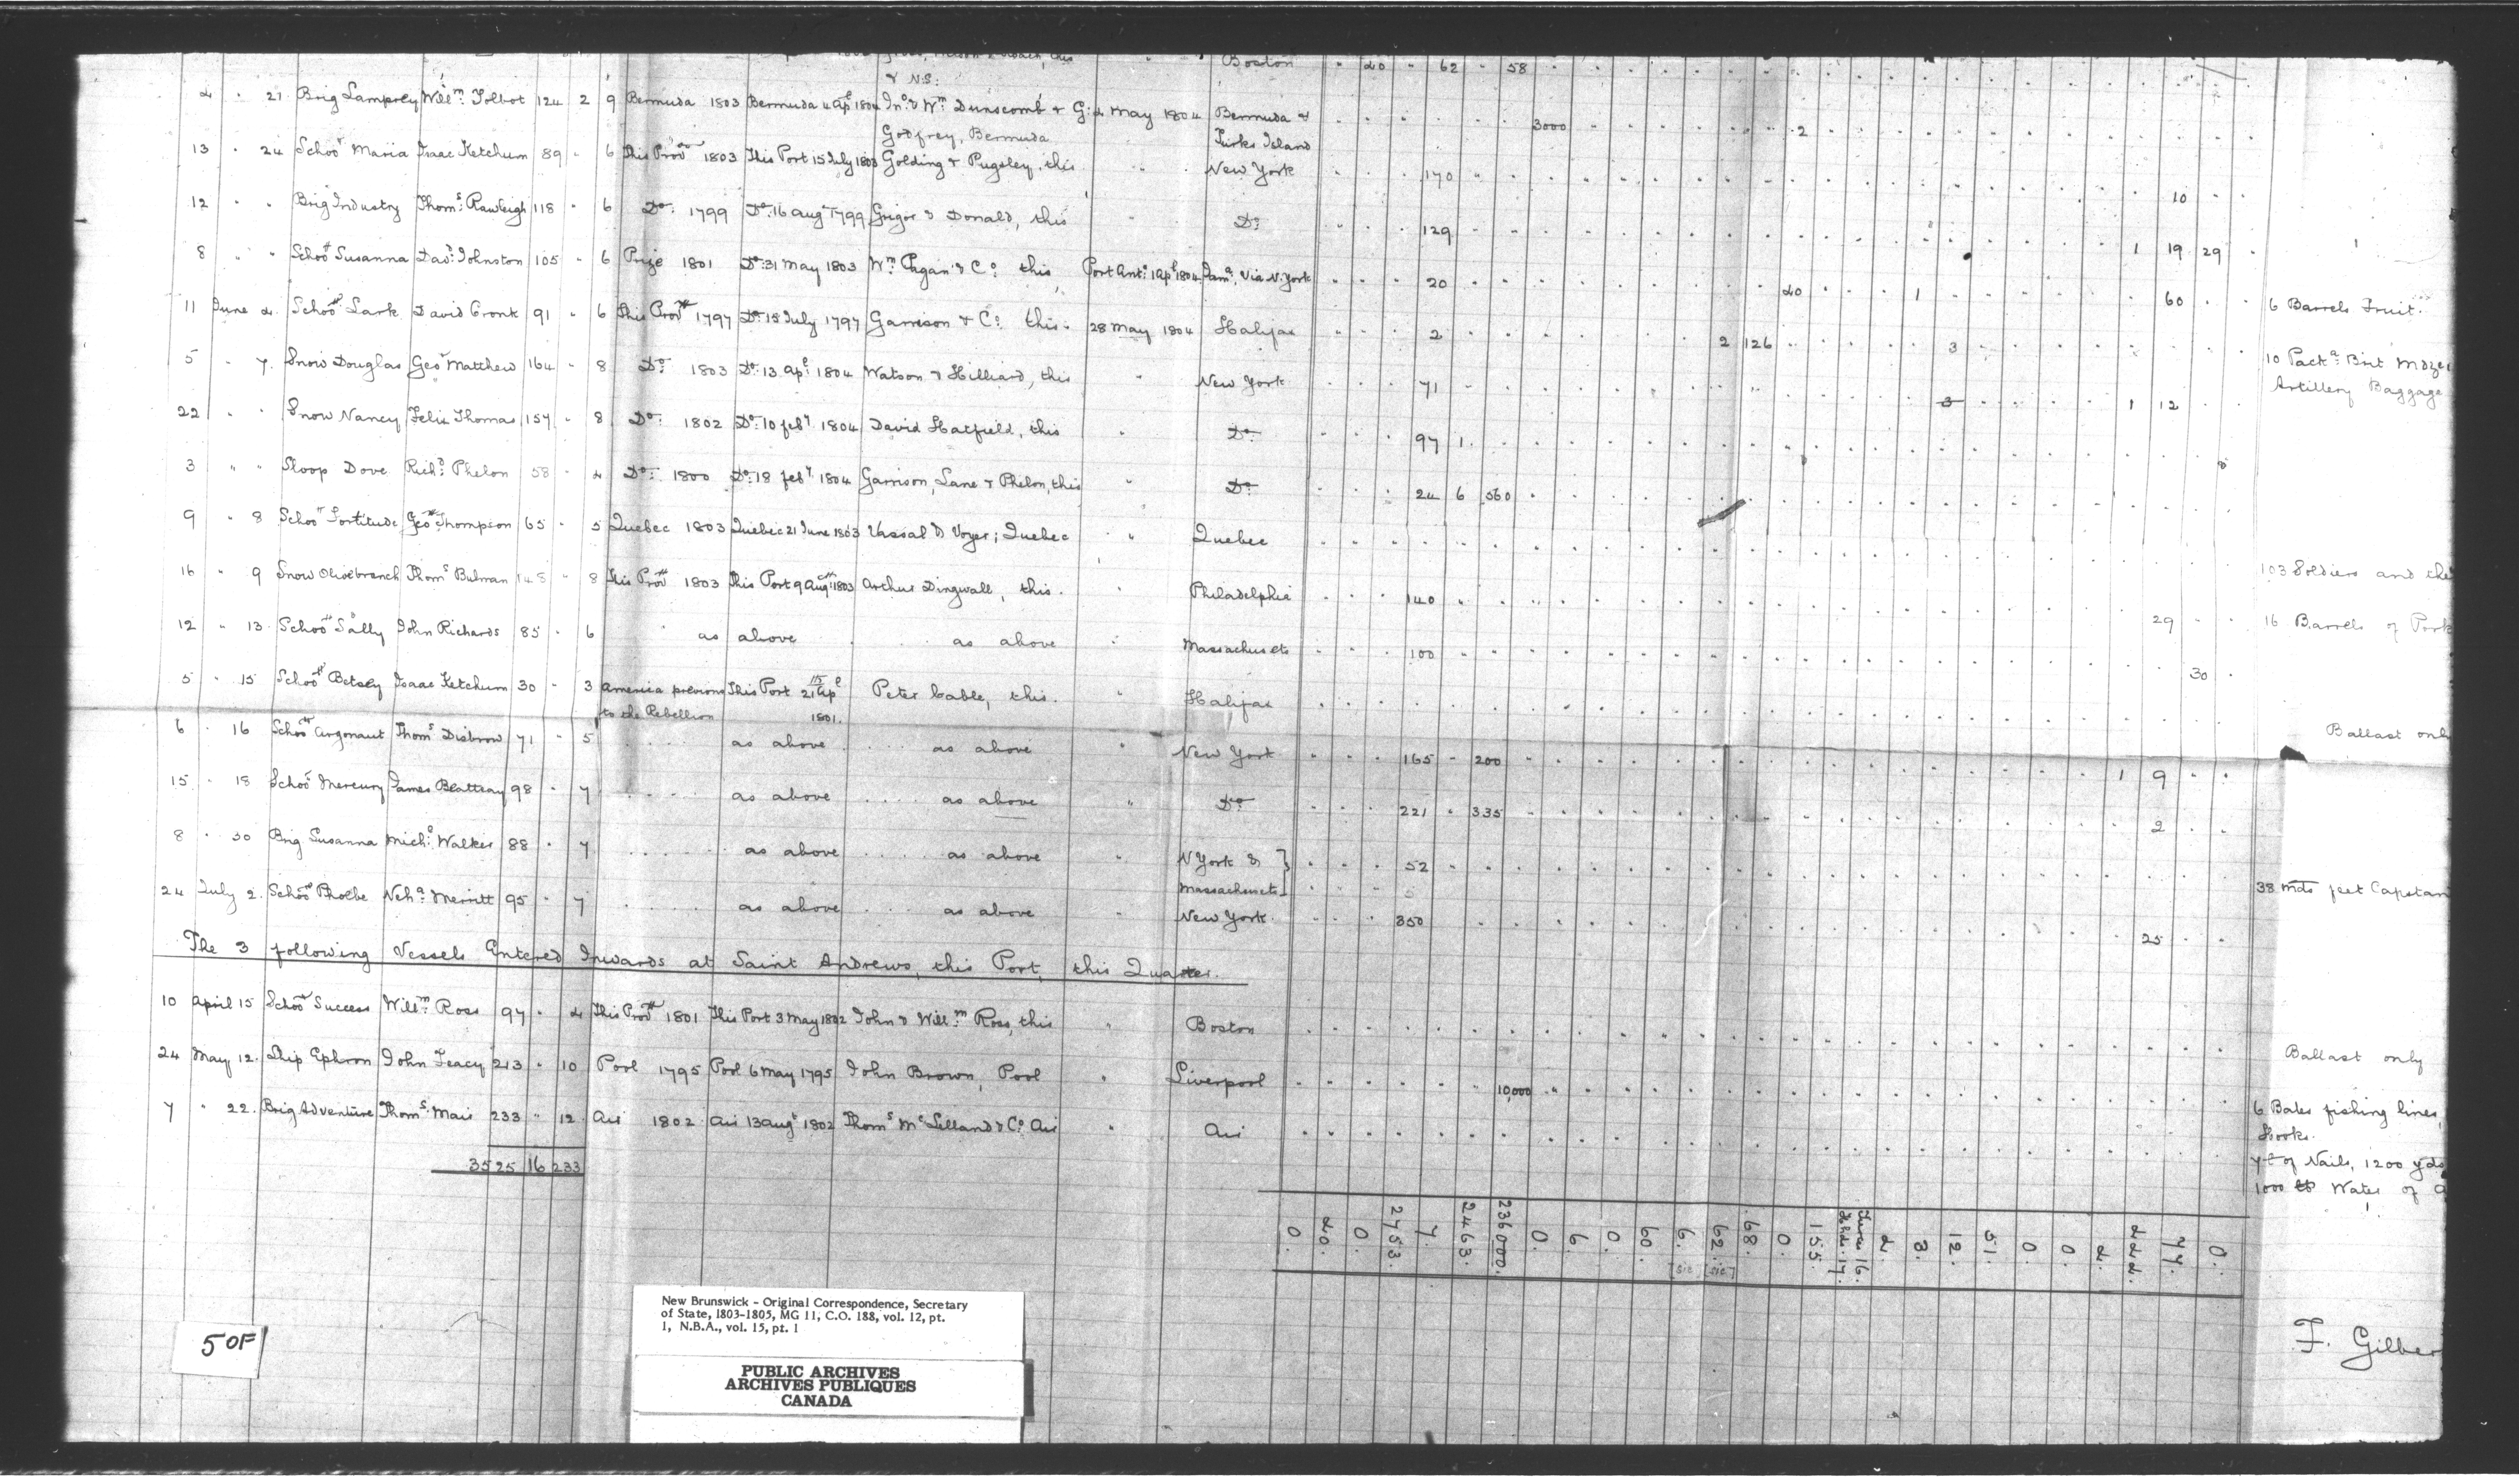 Boston " 40 " 62 " 58
& N.S.
4 " 21 Brig Lamprey Will^m. Tolbot 124 2 9 Bermuda 1803 Bermuda 4 ap^l 1804 Jn^o. & W^m. Dunscomb & G: 2 May 1804 Bermuda & 3000 2
Godfrey, Bermuda Turks Island
13 " 24 Schoo^r Maria Isaac Ketchum 89 " 6 This Prov^ce 1803 This Port 15 July 1803 Golding & Pugsley, this " New York 170 10
12 " " Brig Industry Thom^s. Rawleigh 118 " 6 D^o. 1799 D^o. 16 Aug^t 1799 Grigor & Donald, this " D^o. 129 1 19 29
8 " " Schoo^r Susanna Dav^d. Johnston 105 " 6 Prize 1801 D^o. 31 May 1803 W^m. Pagan & C^o. this, Port Ant^o. 1 Ap^l 1804 Jam^a. Via N. York 20 40 1 60 6 Barrels Fruit.
11 June 4 Schoo^r Lark David Cronk 91 " 6 This Prov^ce 1797 D^o. 18 July 1797 Garrison & C^o. this. 28 May 1804 Halifax 2 2 126 3
10 Pack^s. Brit Mdze
5 " 7 Snow Douglas Geo^e Matthew 164 " 8 D^o. 1803 D^o. 13 Ap^l. 1804 Watson & Hilliard, this " New York 71 3 1 12 Artillery Baggage
22 " " Snow Nancy Felix Thomas 157 " 8 D^o. 1802 D^o. 10 feb^y 1804 David Hatfield, this " D^o. 97 1
3 " " Sloop Dove Rich^d. Phelon 58 " 4 D^o. 1800 D^o. 18 feb^y 1804 Garrison, Lane & Phelon, this " D^o. 24 6 560
9 " 8 Schoo^r Fortitude Geo^e Thompson 65 " 5 Quebec 1803 Quebec 21 June 1803 Vassal & Voyer; Quebec " Quebec 103 Soldiers and the
16 " 9 Snow Olivebranch Thom^s Bulman 148 " 8 This Prov^ce 1803 This Port 9 Aug^t 1803 Arthur Dingwall, this. " Philadelphia 140 29 16 Barrels of Pork
12 " 13 Schoo^r Sally John Richards 85 " 6 as above as above " Massachusets 100 30
5 " 15 Schoo^r Betsey Isaac Ketchum 30 " 3 America previous This Port 15 21 Ap^l Peter Cable, this. " Halifax Ballast only
to the Rebellion 1801.
6 " 16 Schoo^r Argonaut Thom^s Disbrow 71 " 5 as above as above " New York 165 " 200 1 9
15 " 18 Schoo^r Mercury James Beatteay 98 " 7 as above as above " D^o. 221 " 335 2
8 " 30 Brig Susanna Mich^l. Walker 88 " 7 as above as above " N York & } 52 38 mds feet Capstan
Massachusets } 5
24 July 2. Schoo^r Phoebe Neh^a. Merritt 95 " 7 as above as above " New York. 350 25
The 3 following Vessels Entered Inwards at Saint Andrews, this Port, this Quarter.
10 April 15 Schoo^r Success Will^m. Ross 97 " 4 This Prov^ce 1801 This Port 3 May 1802 John & Will^m Ross, this " Boston Ballast only
24 May 12. Ship Ephron John Teacy 213 " 10 Pool 1795 Pool 6 May 1795 John Brown, Pool " Liverpool 10,000 6 Bales fishing lines,
Hooks.
7 " 22. Brig Adventure Thom^s. Mair 233 " 12 Air 1802 Air 13 Aug^t 1802 Thom^s M^cLelland & C^o. Air " Air 7 t of Nails, 1200 yds
1000 lb Water of
3525 16 233
0. 40. 0. 2753. 7. 2463. 236000. 0. 6. 0. 60. 6. [sic] 62. [sic] 68. 0. 155. Hhds. 17. Tierces 16. 2. 3. 12. 51. 0. 0. 2. 444. 77. 0.
F. Gilber
5 OF
New Brunswick - Original Correspondence, Secretary
of State, 1803-1805, MG 11, C.O. 188, vol. 12, pt.
1, N.B.A., vol. 15, pt. 1
PUBLIC ARCHIVES
ARCHIVES PUBLIQUES
CANADA